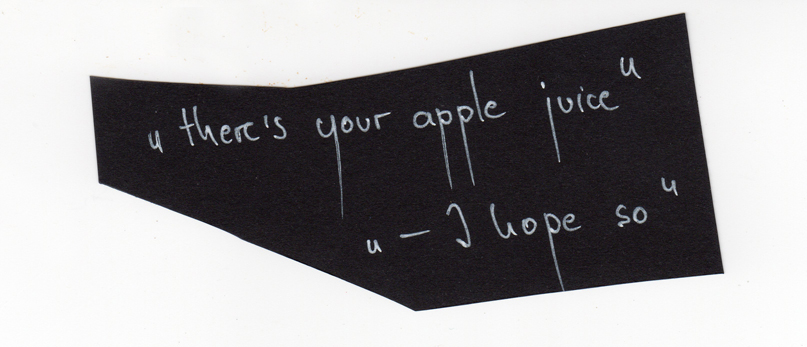 „there's your apple juice"
„- I hope so"